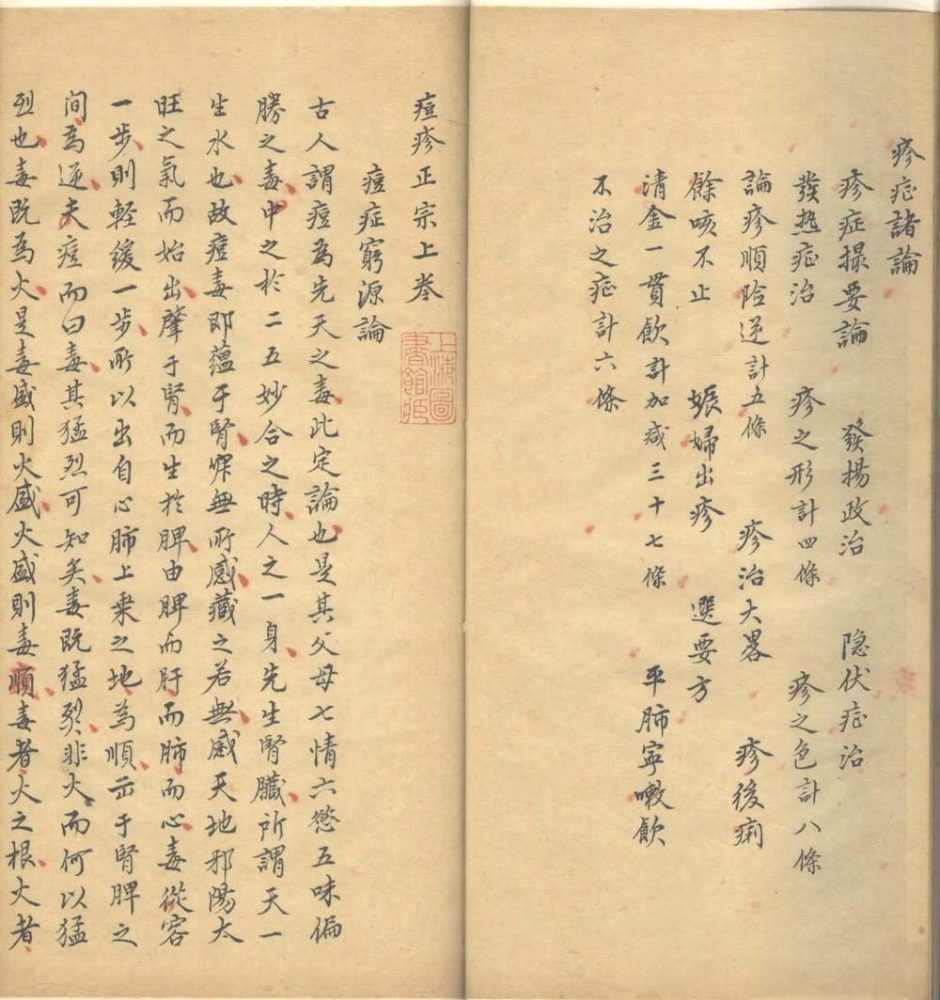 疹症諸論
疹症撮要論 發揚政治 隐伏症治
發热症治 疹之形計四條 疹之色計八條
論疹順險逆計五條 疹治大畧 疹後痢
餘咳不止 娠婦出疹 選要方
清金一貫飲計加减三十七條 平肺寧嗽飲
不治之症計六條
痘疹正宗上卷
上海圖書館藏
痘症窮源論
古人謂痘為先天之毒此定論也是其父母七情六慾五味偏
勝之毒中之於二五妙合之時人之一身先生腎臟所謂天一
生水也故痘毒即蕴于腎寂無所感藏之若無感天地邪陽太
旺之氣而始出肇于腎而生於脾由脾而肝而肺而心毒從容
一步則軽缓一步所以出自心肺上乘之地為順出于腎脾之
间為逆夫痘而曰毒其猛烈可知矣毒既猛烈非火而何以猛
烈也毒既為火是毒盛則火盛火盛則毒順毒者火之根火者